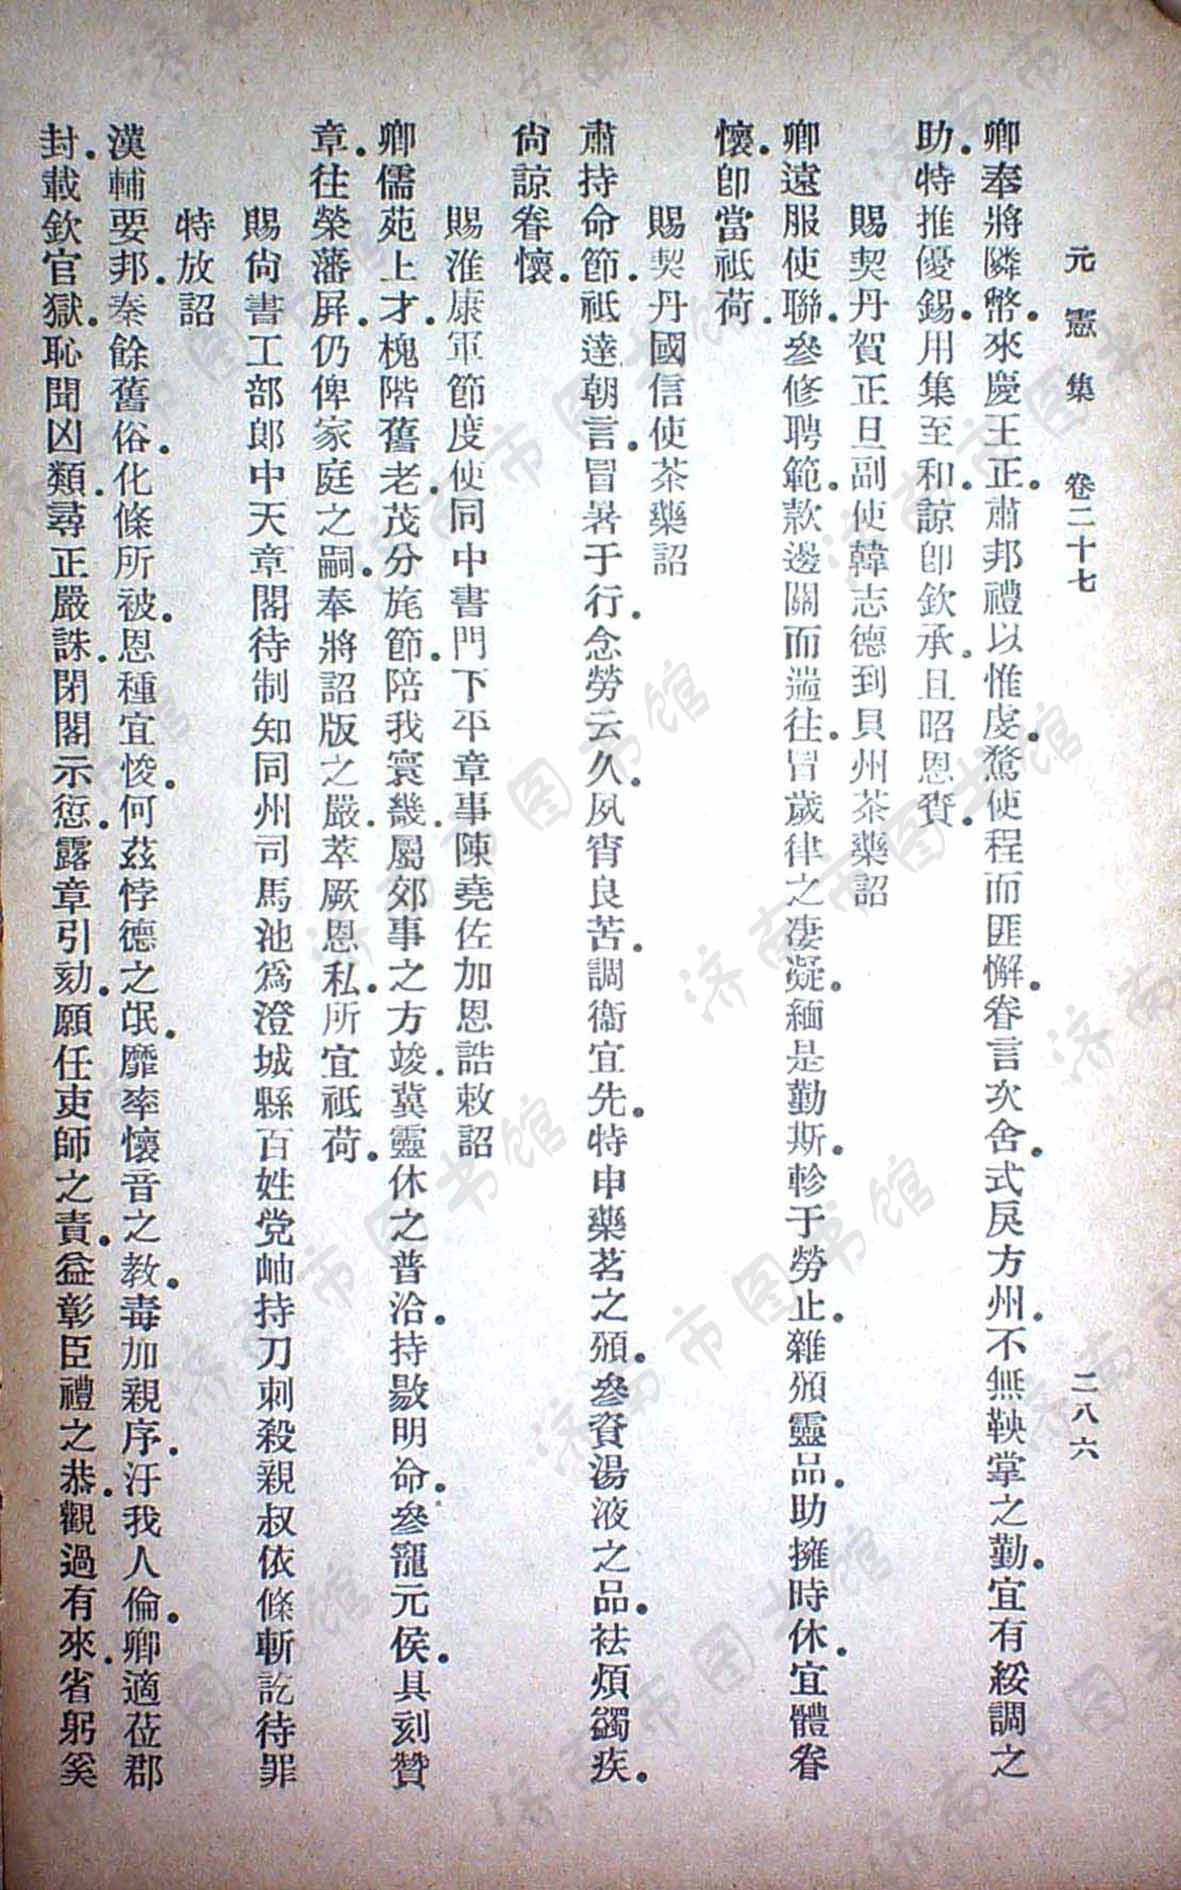 元憲集　卷二十七　二八六
卿奉將隣幣．來慶王正．肅邦禮以惟虔．騖使程而匪懈．眷言次舍．式戾方州．不無鞅掌之勤．宜有綏調之
助．特推優錫．用集至和．諒卽欽承．且昭恩賚．
賜契丹賀正旦副使韓志德到貝州茶藥詔
卿遠服使聯．參修聘範．款邊關而遄往．冒歲律之凄凝．緬是勤斯．軫于勞止．雜頒靈品．助擁時休．宜體眷
懷．卽當祗荷．
賜契丹國信使茶藥詔
肅持命節．祗達朝言．冒暑于行．念勞云久．夙宵良苦．調衞宜先．特申藥茗之頒．參資湯液之品．袪煩蠲疾．
尙諒眷懷．
賜淮康軍節度使同中書門下平章事陳堯佐加恩誥敕詔
卿儒苑上才．槐階舊老．茂分旄節．陪我寰畿．屬郊事之方竣．冀靈休之普洽．持敭明命．參寵元侯．具刻贊
章．往榮藩屏．仍俾家庭之嗣．奉將詔版之嚴．萃厥恩私．所宜祗荷．
賜尙書工部郎中天章閣待制知同州司馬池爲澄城縣百姓党岫持刀刺殺親叔依條斬訖待罪
特放詔
漢輔要邦．秦餘舊俗．化條所被．恩種宜悛．何茲悖德之氓．靡率懷音之教．毒加親序．汙我人倫．卿適莅郡
封．載欽官獄．恥聞凶類．尋正嚴誅．閉閣示愆．露章引劾．願任吏師之責．益彰臣禮之恭．觀過有來．省躬奚